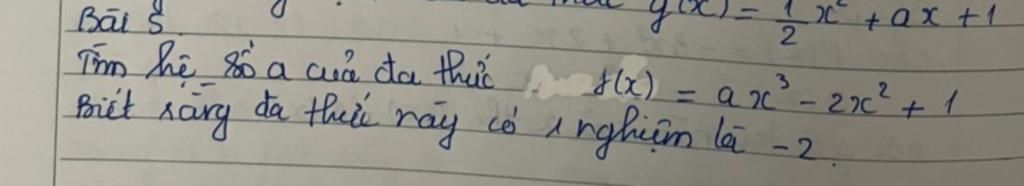 g(x) = 1/2 x² + ax + 1
Bài 5
Tìm hệ số a của đa thức f(x) = ax³ - 2x² + 1
Biết rằng đa thức này có 1 nghiệm là -2.